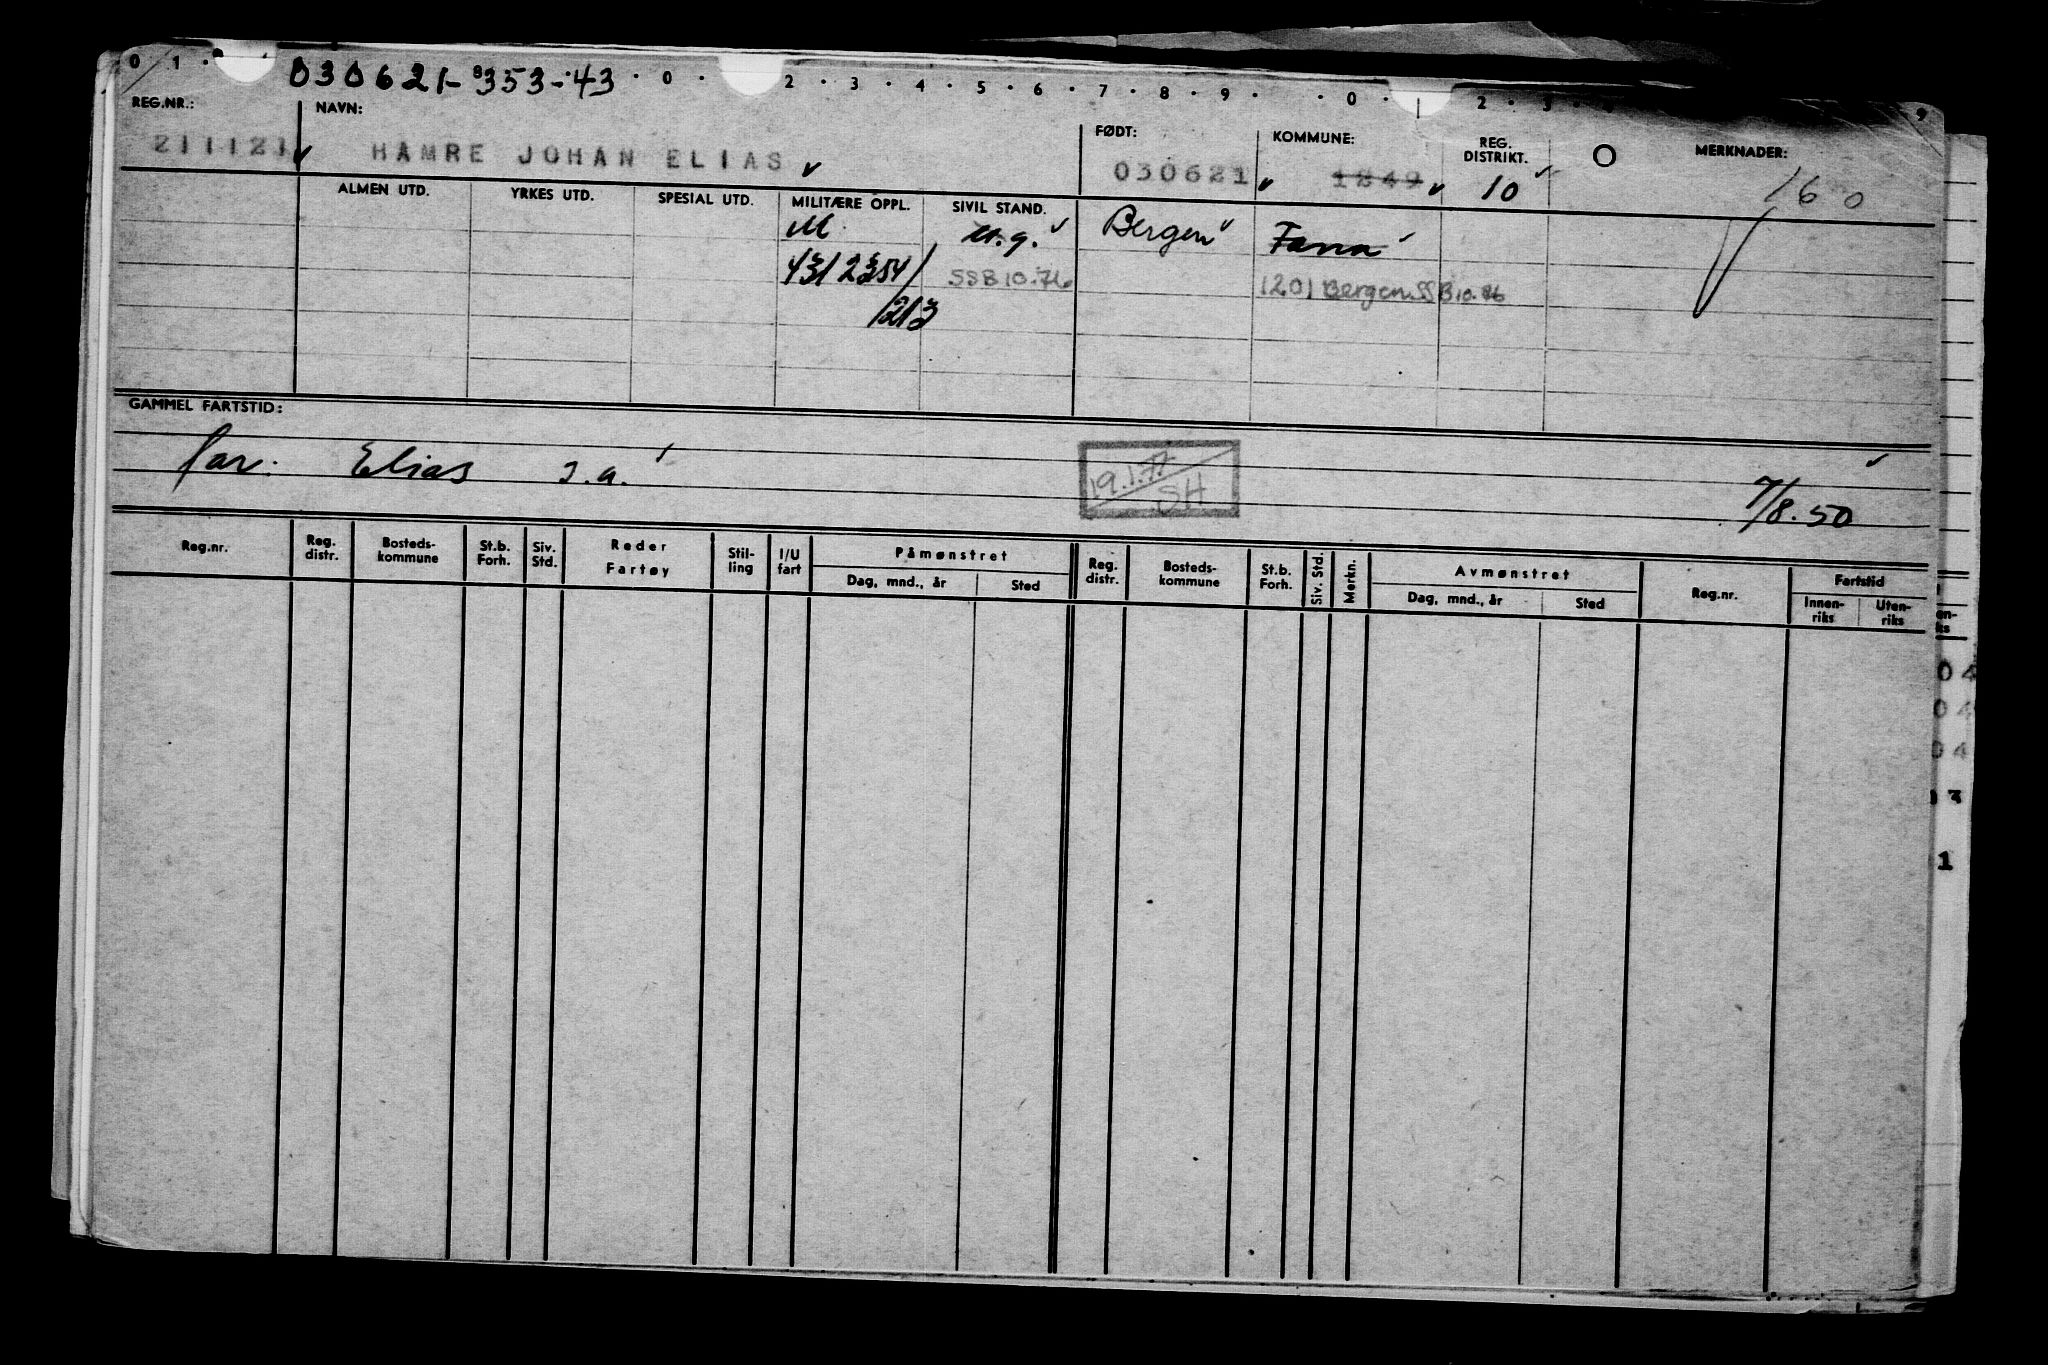 0 1 . 030621-35343 . 0 . 2 . 3 . 4 . 5 . 6 . 7 . 8 . 9 . . 0 . 1 2 . 3 . 9
REG.NR.: NAVN: FØDT: KOMMUNE: REG. DISTRIKT. MERKNADER:
211121 HAMRE JOHAN ELIAS 030621 1249 10 160
ALMEN UTD. YRKES UTD. SPESIAL UTD. MILITÆRE OPPL. SIVIL STAND.
M u.g. Bergen Fana
SSB 10.76 1201 Bergen SSB 10.76
1213
GAMMEL FARTSTID:
far: Elias s.a.
19.1.77
SH
7/8.50
Reg.nr. Reg. distr. Bosteds-kommune St.b. Forh. Siv. Std. Reder Fartøy Stil-ling I/U fart Påmønstret Reg. distr. Bosteds-kommune St.b. Forh. Siv. Std. Merkn. Avmønstret Reg.nr. Fartstid
Dag, mnd., år Sted Dag, mnd., år Sted Innen-riks Uten-riks
en-
ks
04
04
04
03
1